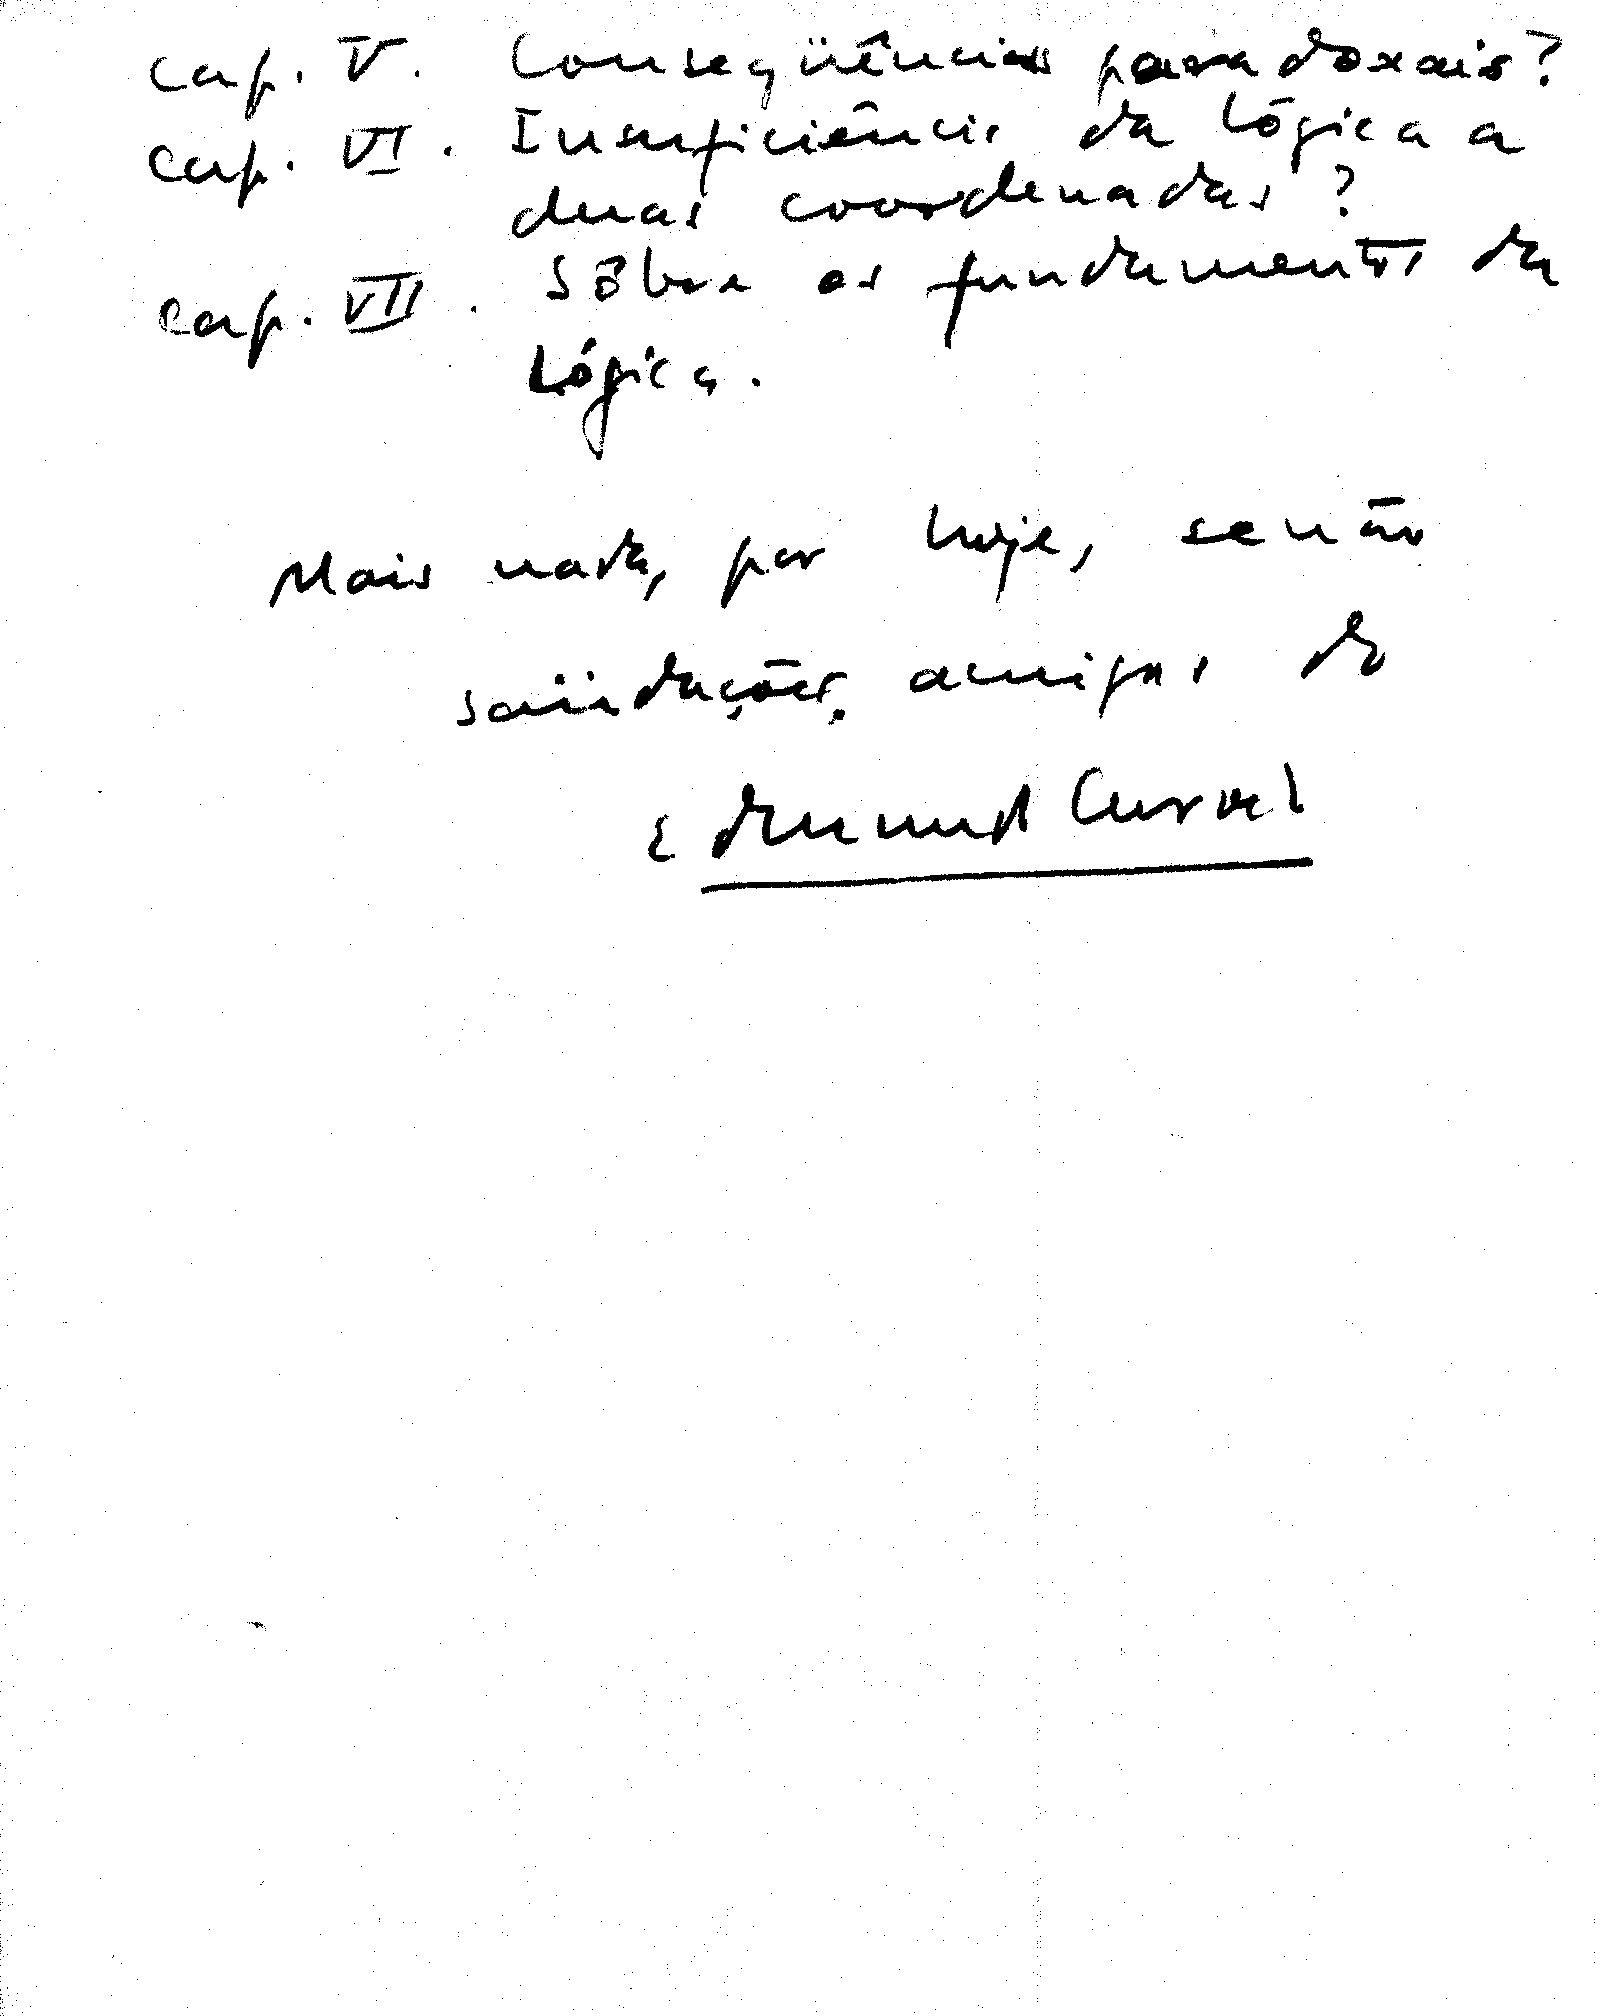 Cap. V. Conseqüências paradoxais?
Cap. VI. Insuficiência da Lógica a
duas coordenadas?
Cap. VII. Sôbre os fundamentos da
Lógica.
Mais nada, por hoje, senão
saüdações amigas do
Edmund Curvel